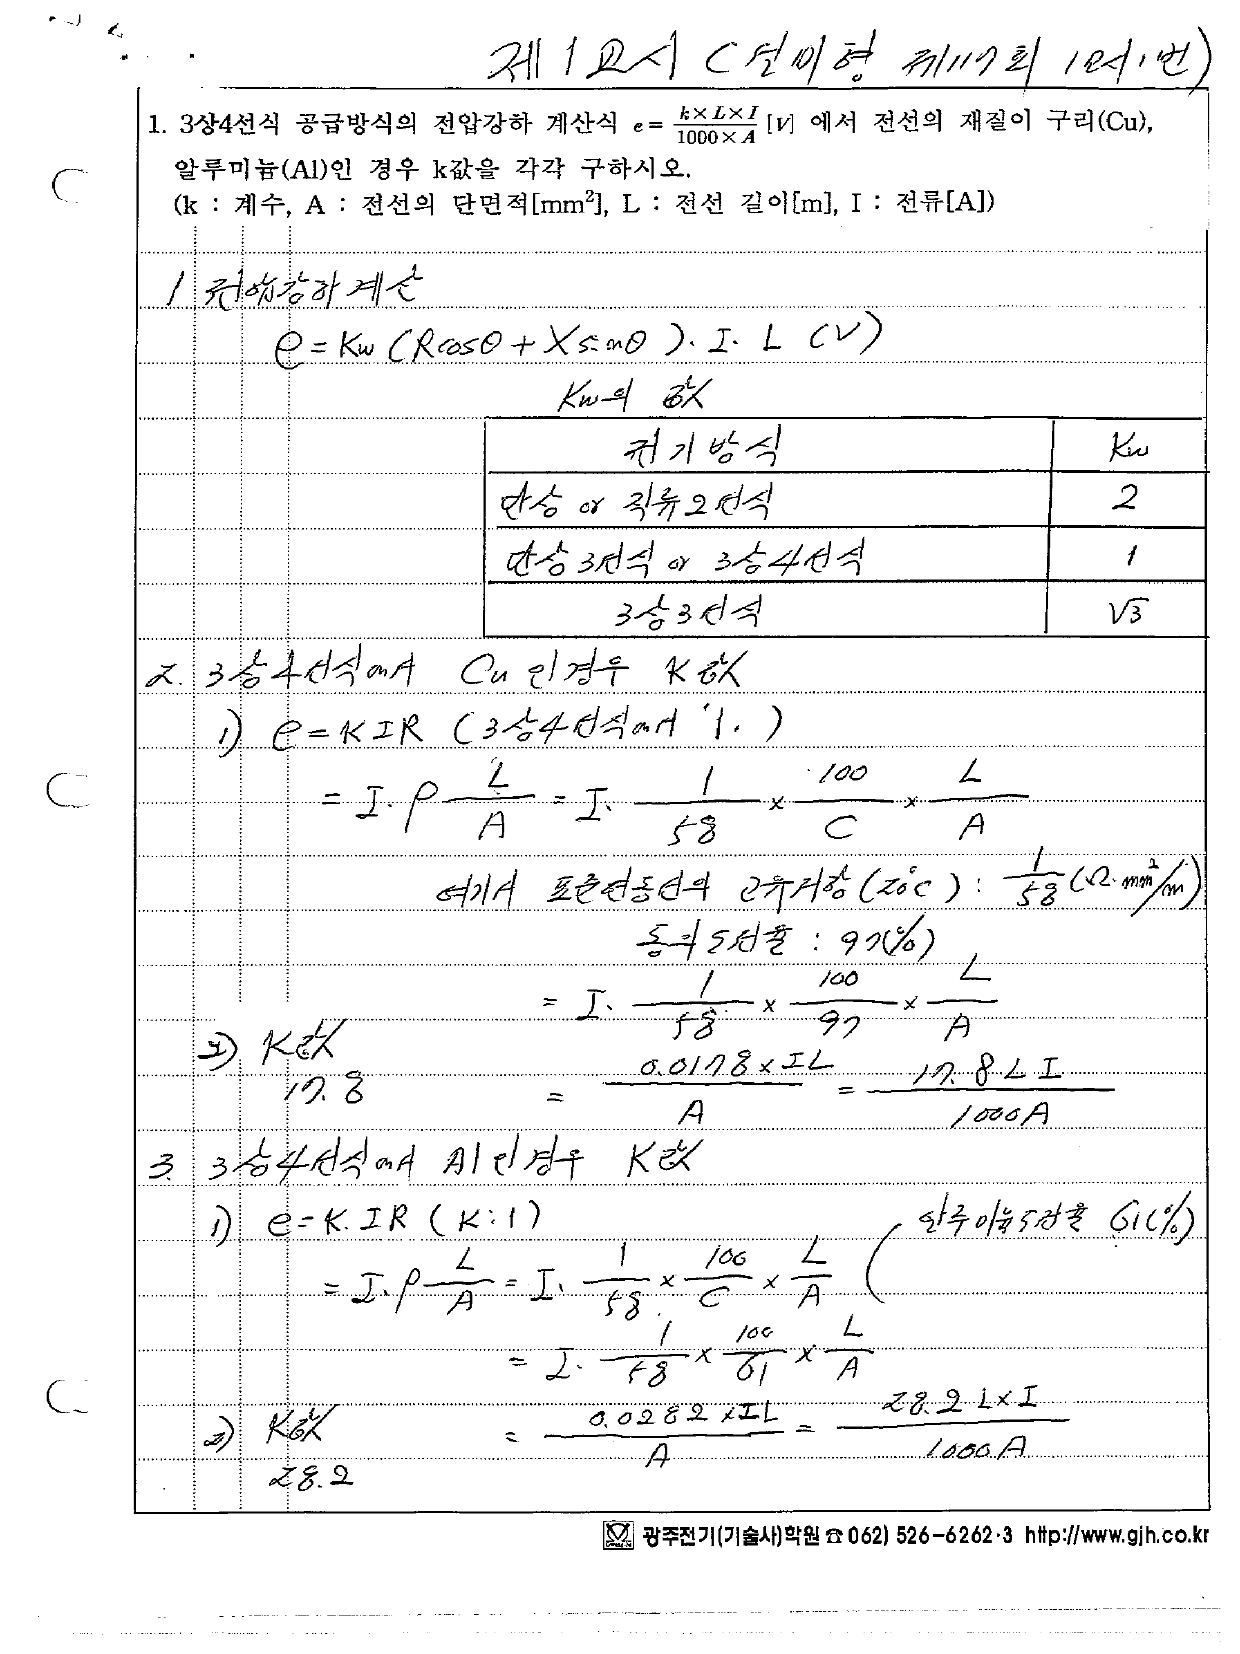 제1교시 (전미형 제117회 1교시1번)
1. 3상4선식 공급방식의 전압강하 계산식 e = k×L×I / 1000×A [V] 에서 전선의 재질이 구리(Cu),
알루미늄(Al)인 경우 k값을 각각 구하시오.
(k : 계수, A : 전선의 단면적[mm²], L : 전선 길이[m], I : 전류[A])
1 전압강하계산
e = Kw (Rcosθ + Xsinθ)·I·L (V)
Kw의 값
전기방식 Kw
단상 or 직류2선식 2
단상3선식 or 3상4선식 1
3상3선식 √3
2. 3상4선식에서 Cu인경우 K값
1) e = KIR (3상4선식에서 '1.)
= I·ρ L/A = I· 1/58 × 100/C × L/A
여기서 표준연동선의 고유저항(20℃) : 1/58 (Ω·mm²/m)
동의도전율 : 97(%)
= I· 1/58 × 100/97 × L/A
2) K값
17.8 = 0.0178×IL / A = 17.8LI / 1000A
3. 3상4선식에서 Al인경우 K값
1) e = K.IR (K:1) 알루미늄도전율 61(%)
= I·ρ L/A = I· 1/58 × 100/C × L/A
= I· 1/58 × 100/61 × L/A
2) K값 = 0.0282×IL / A = 28.2 L×I / 1000A
28.2
광주전기(기술사)학원 ☎ 062) 526-6262·3 http://www.gjh.co.kr